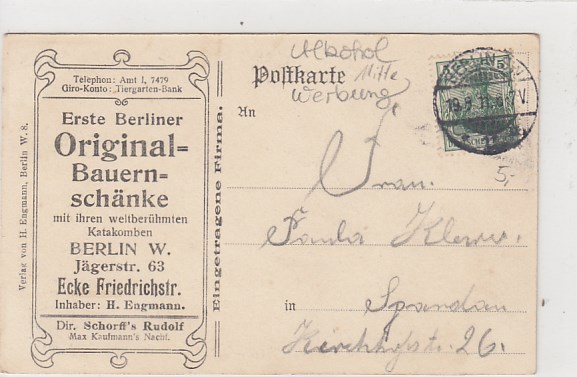 Telephon: Amt I, 7479
Giro-Konto: Tiergarten-Bank
Erste Berliner
Original=
Bauern=
schänke
mit ihren weltberühmten
Katakomben
BERLIN W.
Jägerstr. 63
Ecke Friedrichstr.
Inhaber: H. Engmann.
Dir. Schorff's Rudolf
Max Kaufmann's Nachf.
Verlag von H. Engmann, Berlin W. 8.
Eingetragene Firma.
Alkohol
Mitte
Werbung
Postkarte
An
Frau
Paula
in Spandau
Kirchhofstr. 26.
BERLIN
5
5,-